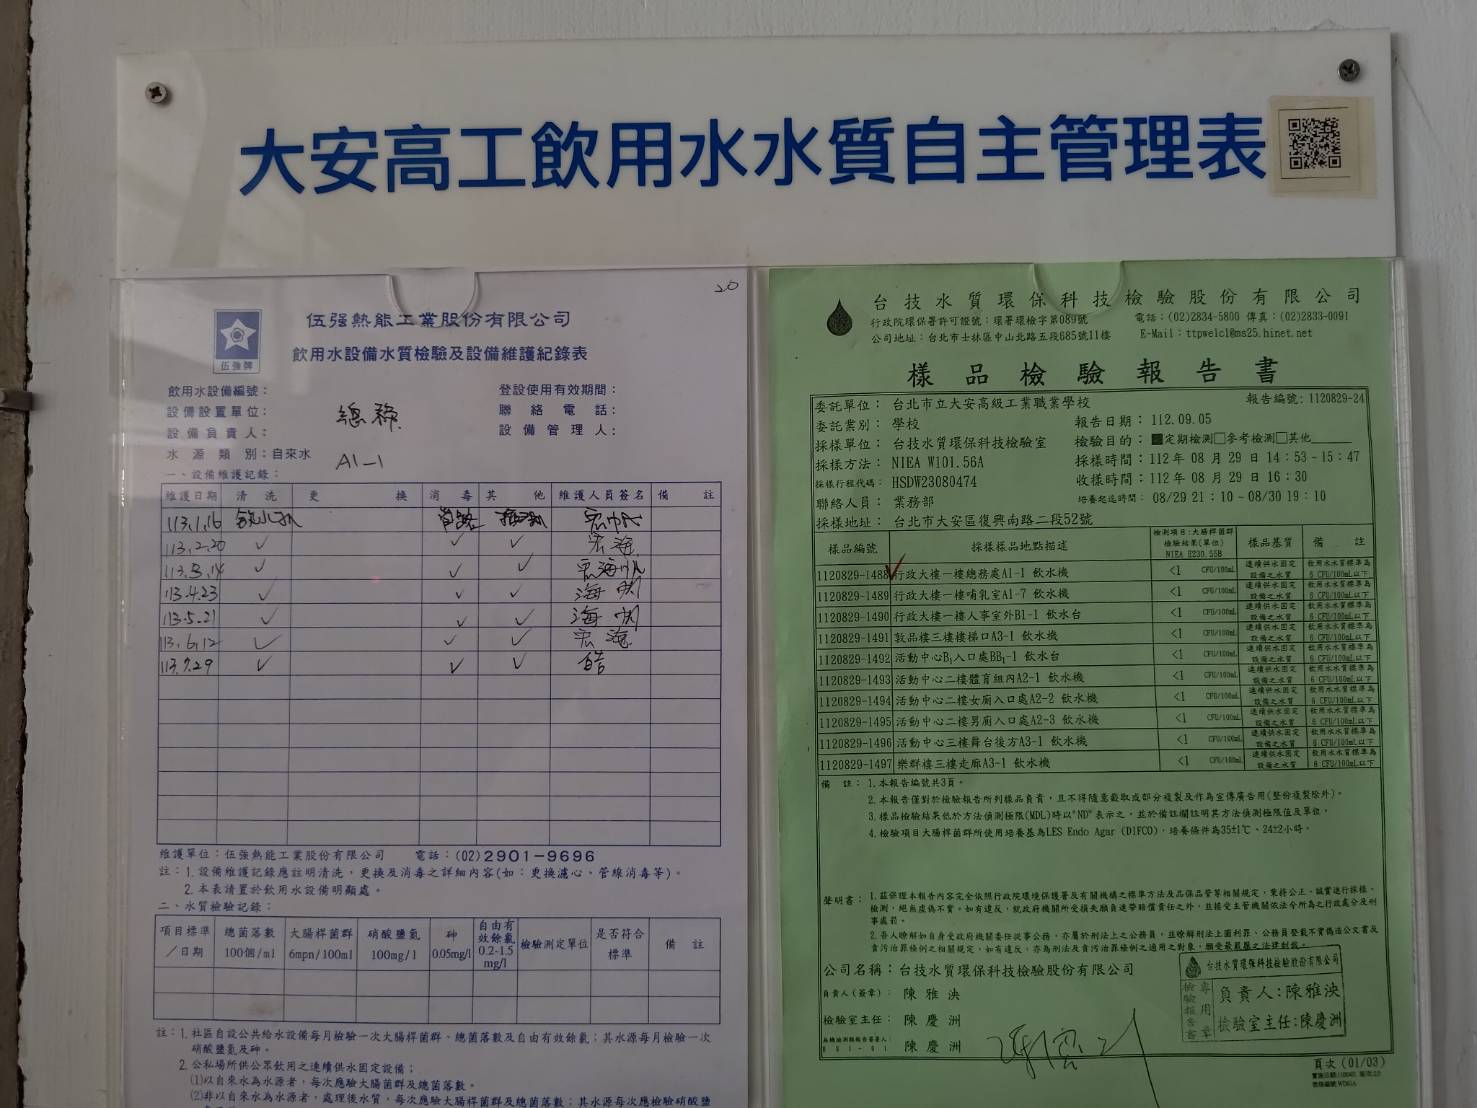 大安高工飲用水水質自主管理表
20
伍強牌
伍强熱能工業股份有限公司
飲用水設備水質檢驗及設備維護紀錄表
飲用水設備編號：
登設使用有效期間：
設備設置單位：
總務
聯絡電話：
設備負責人：
設備管理人：
水源類別：自來水
A1-1
一、設備維護記錄：
維護日期 清洗 更換 消毒 其他 維護人員簽名 備註
113.1.16
113.2.20 ✓ ✓ ✓
113.3.14 ✓ ✓ ✓
113.4.23 ✓ ✓ ✓
113.5.21 ✓ ✓ ✓
113.6.12 ✓ ✓ ✓
113.7.29 ✓ ✓ ✓
維護單位：伍強熱能工業股份有限公司 電話：(02)2901-9696
註：1.設備維護記錄應註明清洗，更換及消毒之詳細內容(如：更換濾心、管線消毒等)。
2.本表請置於飲用水設備明顯處。
二、水質檢驗記錄：
項目標準／日期 總菌落數100個/ml 大腸桿菌群6mpn/100ml 硝酸鹽氮100mg/l 砷0.05mg/l 自由有效餘氯0.2-1.5mg/l 檢驗測定單位 是否符合標準 備註
註：1.社區自設公共給水設備每月檢驗一次大腸桿菌群、總菌落數及自由有效餘氯；其水源每月檢驗一次
硝酸鹽氮及砷。
2.公私場所供公眾飲用之連續供水固定設備；
(1)以自來水為水源者，每次應驗大腸桿菌群及總菌落數。
(2)非以自來水為水源者，處理後水質，每次應驗大腸桿菌群及總菌落數；其水源每次應檢驗硝酸鹽
台技水質環保科技檢驗股份有限公司
行政院環保署許可證號：環署環檢字第089號
電話：(02)2834-5800 傳真：(02)2833-0091
公司地址：台北市士林區中山北路五段685號11樓
E-Mail：ttpwelcl@ms25.hinet.net
樣品檢驗報告書
報告編號：1120829-24
委託單位：台北市立大安高級工業職業學校
委託業別：學校
報告日期：112.09.05
採樣單位：台技水質環保科技檢驗室
檢驗目的：■定期檢測□參考檢測□其他
採樣方法：NIEA W101.56A
採樣時間：112年08月29日14：53-15：47
採樣行程代碼：HSDW23080474
收樣時間：112年08月29日16：30
聯絡人員：業務部
培養起迄時間：08/29 21：10-08/30 19：10
採樣地址：台北市大安區復興南路二段52號
樣品編號 採樣樣品地點描述 檢測項目:大腸桿菌群 檢驗結果(單位) NIEA E230.55B 樣品基質 備註
1120829-1488 行政大樓一樓總務處A1-1 飲水機 <1 CFU/100mL 連續供水固定設備之水質 飲用水水質標準為6 CFU/100mL以下
1120829-1489 行政大樓一樓哺乳室A1-7 飲水機 <1 CFU/100mL 連續供水固定設備之水質 飲用水水質標準為6 CFU/100mL以下
1120829-1490 行政大樓一樓人事室外B1-1 飲水台 <1 CFU/100mL 連續供水固定設備之水質 飲用水水質標準為6 CFU/100mL以下
1120829-1491 敦品樓三樓樓梯口A3-1 飲水機 <1 CFU/100mL 連續供水固定設備之水質 飲用水水質標準為6 CFU/100mL以下
1120829-1492 活動中心B1入口處BB1-1 飲水台 <1 CFU/100mL 連續供水固定設備之水質 飲用水水質標準為6 CFU/100mL以下
1120829-1493 活動中心二樓體育組內A2-1 飲水機 <1 CFU/100mL 連續供水固定設備之水質 飲用水水質標準為6 CFU/100mL以下
1120829-1494 活動中心二樓女廁入口處A2-2 飲水機 <1 CFU/100mL 連續供水固定設備之水質 飲用水水質標準為6 CFU/100mL以下
1120829-1495 活動中心二樓男廁入口處A2-3 飲水機 <1 CFU/100mL 連續供水固定設備之水質 飲用水水質標準為6 CFU/100mL以下
1120829-1496 活動中心三樓舞台後方A3-1 飲水機 <1 CFU/100mL 連續供水固定設備之水質 飲用水水質標準為6 CFU/100mL以下
1120829-1497 樂群樓三樓走廊A3-1 飲水機 <1 CFU/100mL 連續供水固定設備之水質 飲用水水質標準為6 CFU/100mL以下
備註：1.本報告編號共3頁。
2.本報告僅對於檢驗報告所列樣品負責，且不得隨意截取或部分複製及作為宣傳廣告用(整份複製除外)。
3.樣品檢驗結果低於方法偵測極限(MDL)時以"ND"表示之，並於備註欄註明其方法偵測極限值及單位。
4.檢驗項目大腸桿菌群所使用培養基為LES Endo Agar (DIFCO)，培養條件為35±1℃、24±2小時。
聲明書：1.茲保證本報告內容完全依照行政院環境保護署及有關機構之標準方法及品保品管等相關規定，秉持公正、誠實進行採樣、
檢測，絕無虛偽不實。如有違反，就政府機關所受損失願負連帶賠償責任之外，並接受主管機關依法令所為之行政處分及刑
事處罰。
2.吾人瞭解如自身受政府機關委任從事公務，亦屬於刑法上之公務員，並瞭解刑法上圖利罪、公務員登載不實偽造公文書及
貪污治罪條例之相關規定，如有違反，亦為刑法及貪污治罪條例之適用之對象，願受最嚴厲之法律制裁。
公司名稱：台技水質環保科技檢驗股份有限公司
負責人(簽章)：陳雅泱
檢驗室主任：陳慶洲
陳慶洲
台技水質環保科技檢驗股份有限公司
檢驗報告書專用章
負責人:陳雅泱
檢驗室主任:陳慶洲
頁次(01/03)